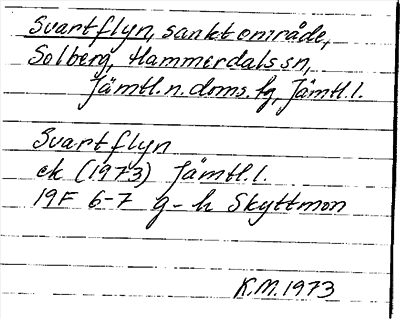 Svartflyn, sankt område,
Solberg, Hammerdals sn,
Jämtl. n. doms. fg, Jämtl. l.
Svartflyn
ek (1973) Jämtl. l.
19F 6-7 g-h Skyttmon
K.M. 1973